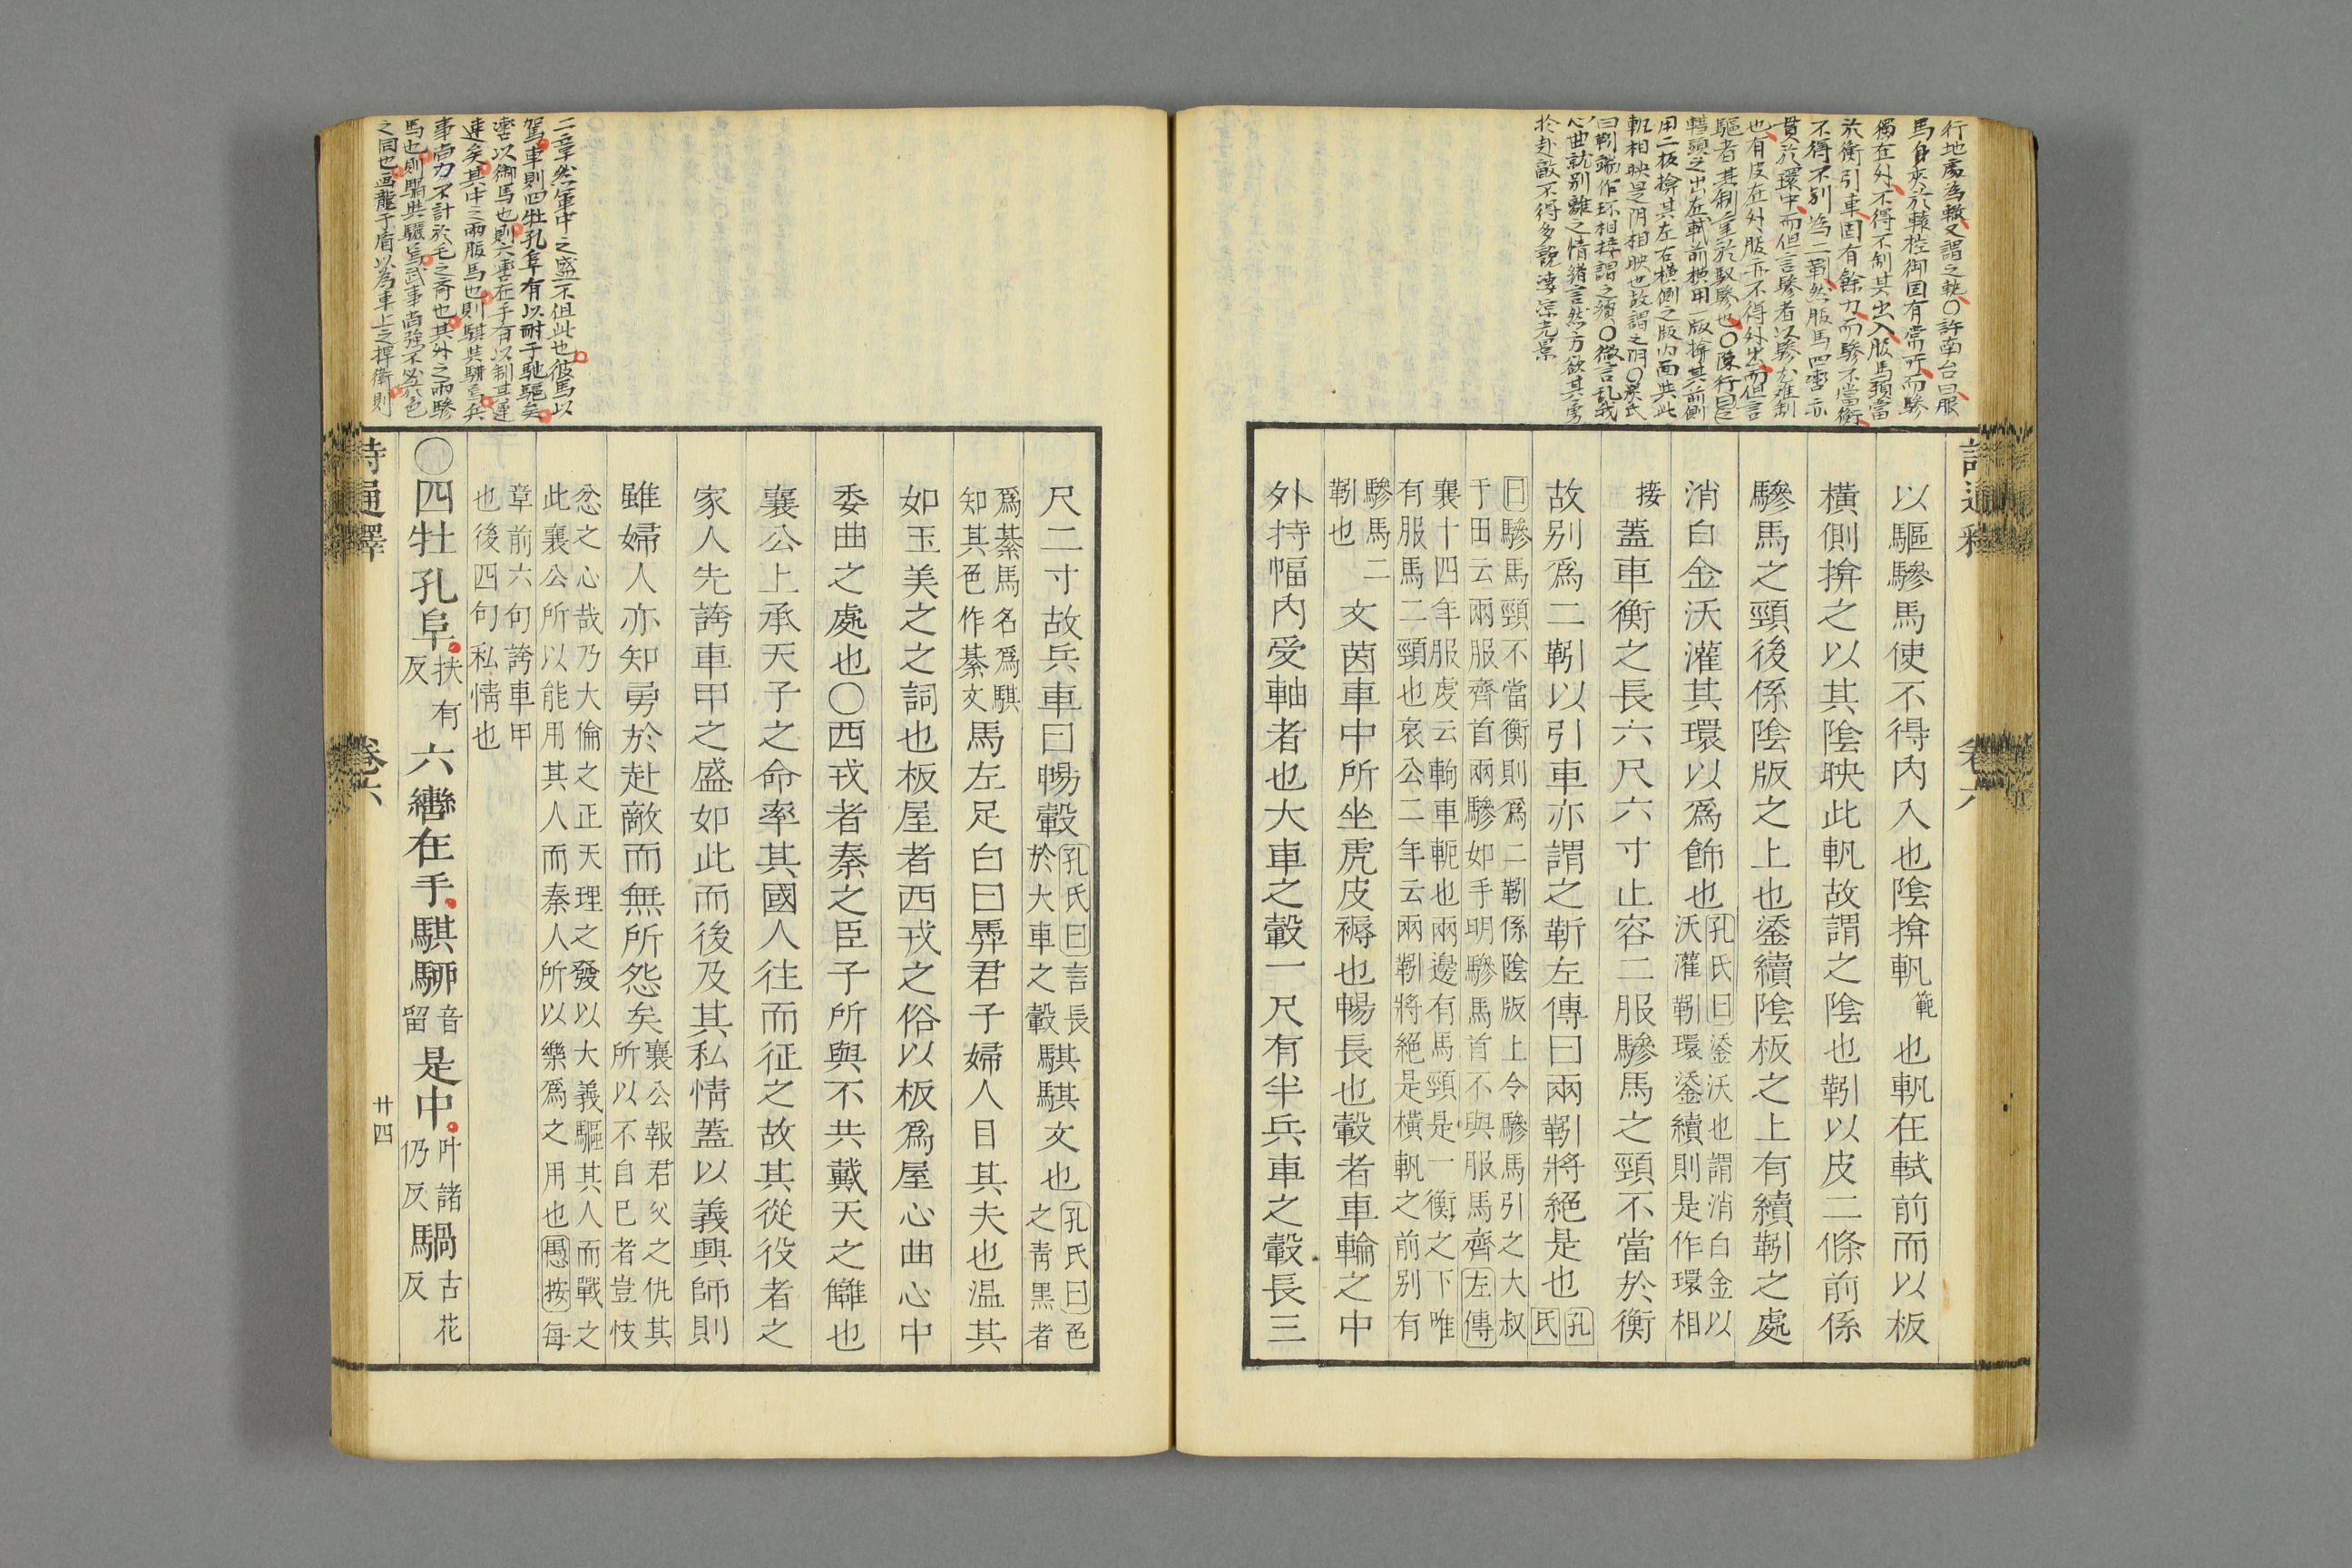 行地處為轍又謂之軌〇許南台曰服
馬身夾於轅控御固有常所而驂
獨在外不得不制其出入服馬頸當
於衡引車固有餘力而驂不當衡
不得不別為二靷然服馬四轡亦
貫於環中而但言驂者以驂尤難制
也有皮在外服亦不得外出而但言
驅者其制主於馭驂也〇陳行曰
轄頭之出在軾前橫用一版揜其前側
用二板揜其左右橫側之版內面共此
軓相映是陰相映也故謂之陰〇吳氏
曰靷端作环相接謂之續〇微言乱我
心曲就別離之情緒言然方欲其勇
於赴敵不得多說凄涼光景
詩通釋
卷六
以驅驂馬使不得內入也陰揜軓範也軓在軾前而以板
橫側揜之以其陰映此軓故謂之陰也靷以皮二條前係
驂馬之頸後係陰版之上也鋈續陰板之上有續靷之處
消白金沃灌其環以爲飾也孔氏曰鋈沃也謂消白金以
沃灌靷環鋈續則是作環相
接蓋車衡之長六尺六寸止容二服驂馬之頸不當於衡
故別爲二靷以引車亦謂之靳左傳曰兩靷將絕是也孔氏
曰驂馬頸不當衡則爲二靷係陰版上令驂馬引之大叔
于田云兩服齊首兩驂如手明驂馬首不與服馬齊左傳
襄十四年服虔云軥車軶也兩邊有馬頸是一衡之下唯
有服馬二頸也哀公二年云兩靷將絕是橫軓之前別有
驂馬二
靷也文茵車中所坐虎皮褥也暢長也轂者車輪之中
外持幅內受軸者也大車之轂一尺有半兵車之轂長三
尺二寸故兵車曰暢轂孔氏曰言長
於大車之轂騏騏文也孔氏曰色
之靑黑者
爲綦馬名爲騏
知其色作綦文馬左足白曰馵君子婦人目其夫也温其
如玉美之之詞也板屋者西戎之俗以板爲屋心曲心中
委曲之處也〇西戎者秦之臣子所與不共戴天之讎也
襄公上承天子之命率其國人往而征之故其從役者之
家人先誇車甲之盛如此而後及其私情蓋以義興師則
雖婦人亦知勇於赴敵而無所怨矣襄公報君父之仇其
所以不自已者豈忮
忿之心哉乃大倫之正天理之發以大義驅其人而戰之
此襄公所以能用其人而秦人所以樂爲之用也愚按每
章前六句誇車甲
也後四句私情也
〇四牡孔阜扶有
反六轡在手騏駵音
留是中叶諸
仍反騧古花
反
詩通釋
卷六
廿四
二章然軍中之盛不但此也彼馬以
駕車則四牡孔阜有以耐于馳驅矣
轡以御馬也則六轡在手有以制其遲
速矣其中之兩服馬也則騏共駵焉兵
事尚力不計於毛之齊也其外之兩驂
馬也則騧共驪焉武事尚强不必於色
之同也画龍于盾以為車上之捍衛則